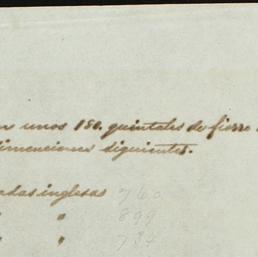 n unos 150. quintales de fierro
dimenciones siguientes.
adas inglesas 760
" " 899
" " 737